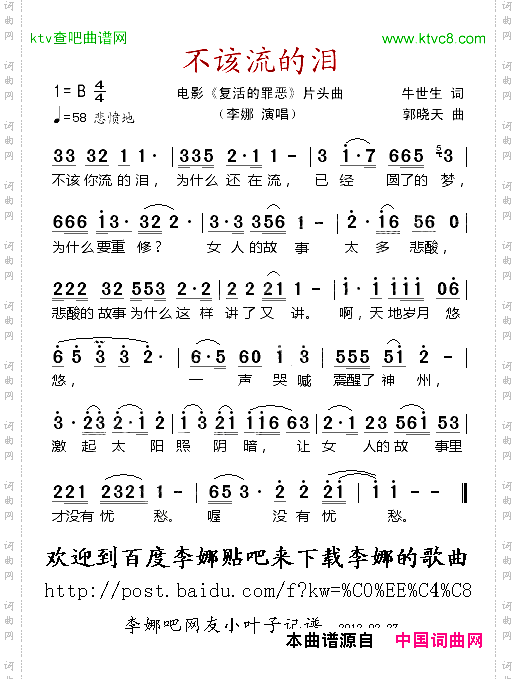 ktv查吧曲谱网 www.ktvc8.com
不该流的泪
1=B 4/4 电影《复活的罪恶》片头曲 牛世生 词
♩=58 悲愤地 （李娜 演唱） 郭晓天 曲
33 32 1 1 | 335 2·1 2 - | 3 1·7 665 53 |
不该你流的泪，为什么还在流，已经圆了的梦，
666 13· 32 2· | 3·3 3 356 1 - | 2· 16 56 0 |
为什么要重修？女人的故事太多悲酸，
222 32 553 2·2 | 2 2 21 1 - | 1· 1 111 0 6 |
悲酸的故事为什么这样讲了又讲。啊，天地岁月悠
6 5 3 3 2· - | 6·5 60 1 3 | 555 51 2 - |
悠，一声哭喊震醒了神州，
3· 23 2·1 2 | 1·3 21 116 63 | 2·1 23 561 53 |
激起太阳照阴暗，让女人的故事里
221 2321 1 - | 65 3· 2 2 21 | 1 1 - - ‖
才没有忧愁。喔没有忧愁。
欢迎到百度李娜贴吧来下载李娜的歌曲
http://post.baidu.com/f?kw=%C0%EE%C4%C8
李娜吧网友小叶子记谱
本曲谱源自 中国词曲网